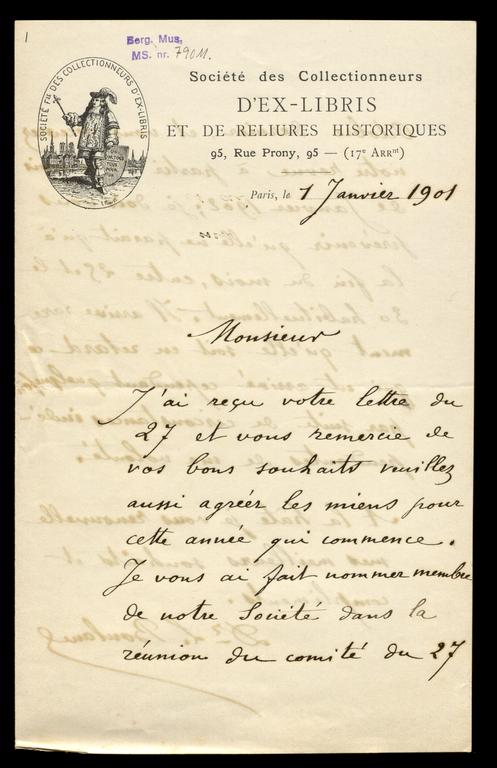 1
Berg. Mus.
MS. nr. 790M.
SOCIÉTÉ Fse DES COLLECTIONNEURS D'EX-LIBRIS
Société des Collectionneurs
D'EX-LIBRIS
ET DE RELIURES HISTORIQUES
95, Rue Prony, 95 — (17e ARRnt)
Paris, le 1 Janvier 1901
Monsieur
J'ai reçu votre lettre du
27 et vous remercie de
vos bons souhaits veuillez
aussi agréer les miens pour
cette année qui commence.
Je vous ai fait nommer membre
de notre Société dans la
réunion du comité du 27